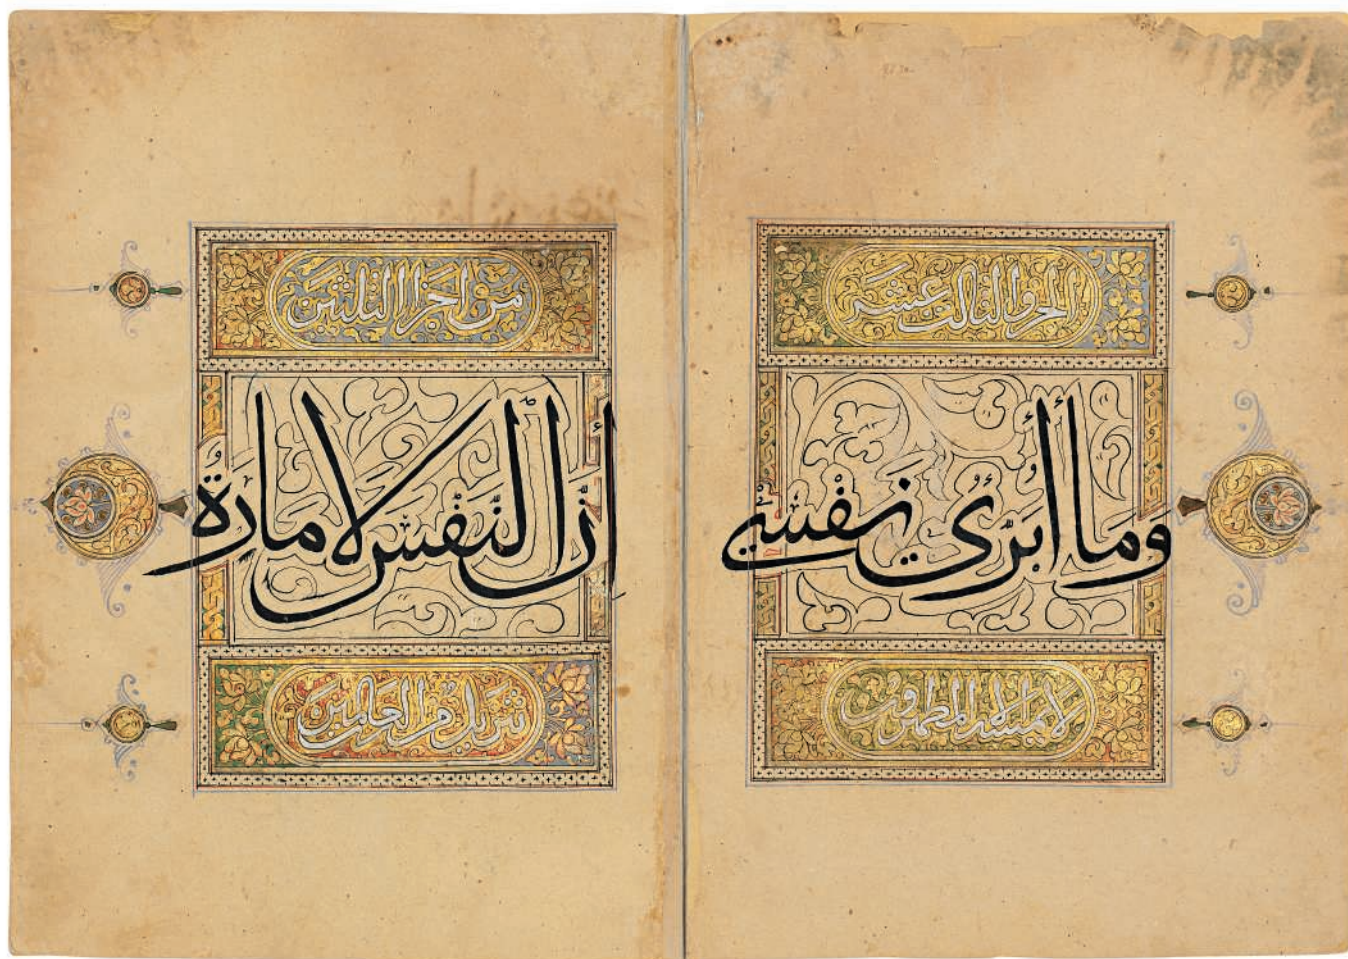 الجزو الثالث عشر
وَمَا أُبَرِّئُ نَفْسِي
لا يمسه الا المطهرون
من اجزا الثلثين
إِنَّ النَّفْسَ لَأَمَّارَةٌ
تنزيل من رب العلمين